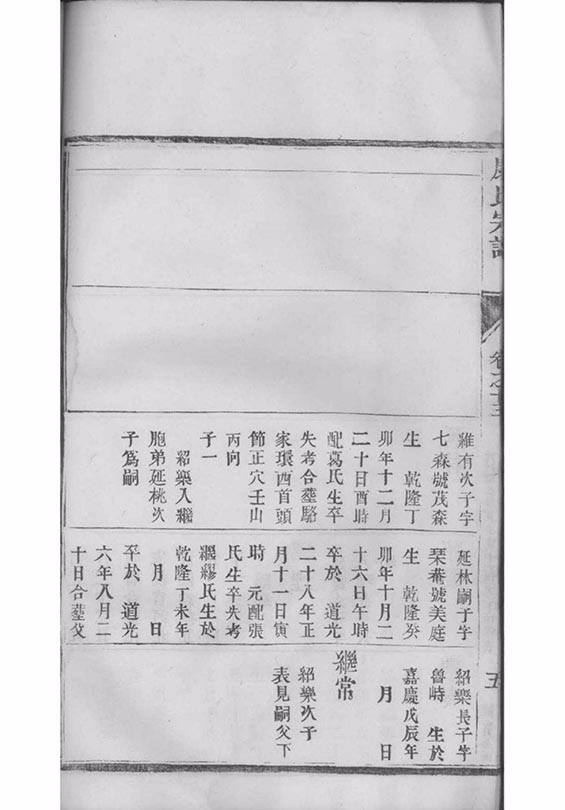 氏宗譜
卷之十三
五
維有次子字
七森號茂森
生 乾隆丁
卯年十二月
二十日酉時
配葛氏生卒
失考合塟駱
家環酉首頭
節正穴壬山
丙向
子一
紹樂入繼
胞弟延桃次
子爲嗣
延林嗣子字
琹菴號美庭
生 乾隆癸
卯年十月二
十六日午時
卒於 道光
二十八年正
月十一日寅
時 元配張
氏生卒失考
繼繆氏生於
乾隆丁未年
月 日
卒於 道光
六年八月二
十日合塟父
紹樂長子字
魯峙 生於
嘉慶戊辰年
月 日
繼常
紹樂次子
表見嗣父下